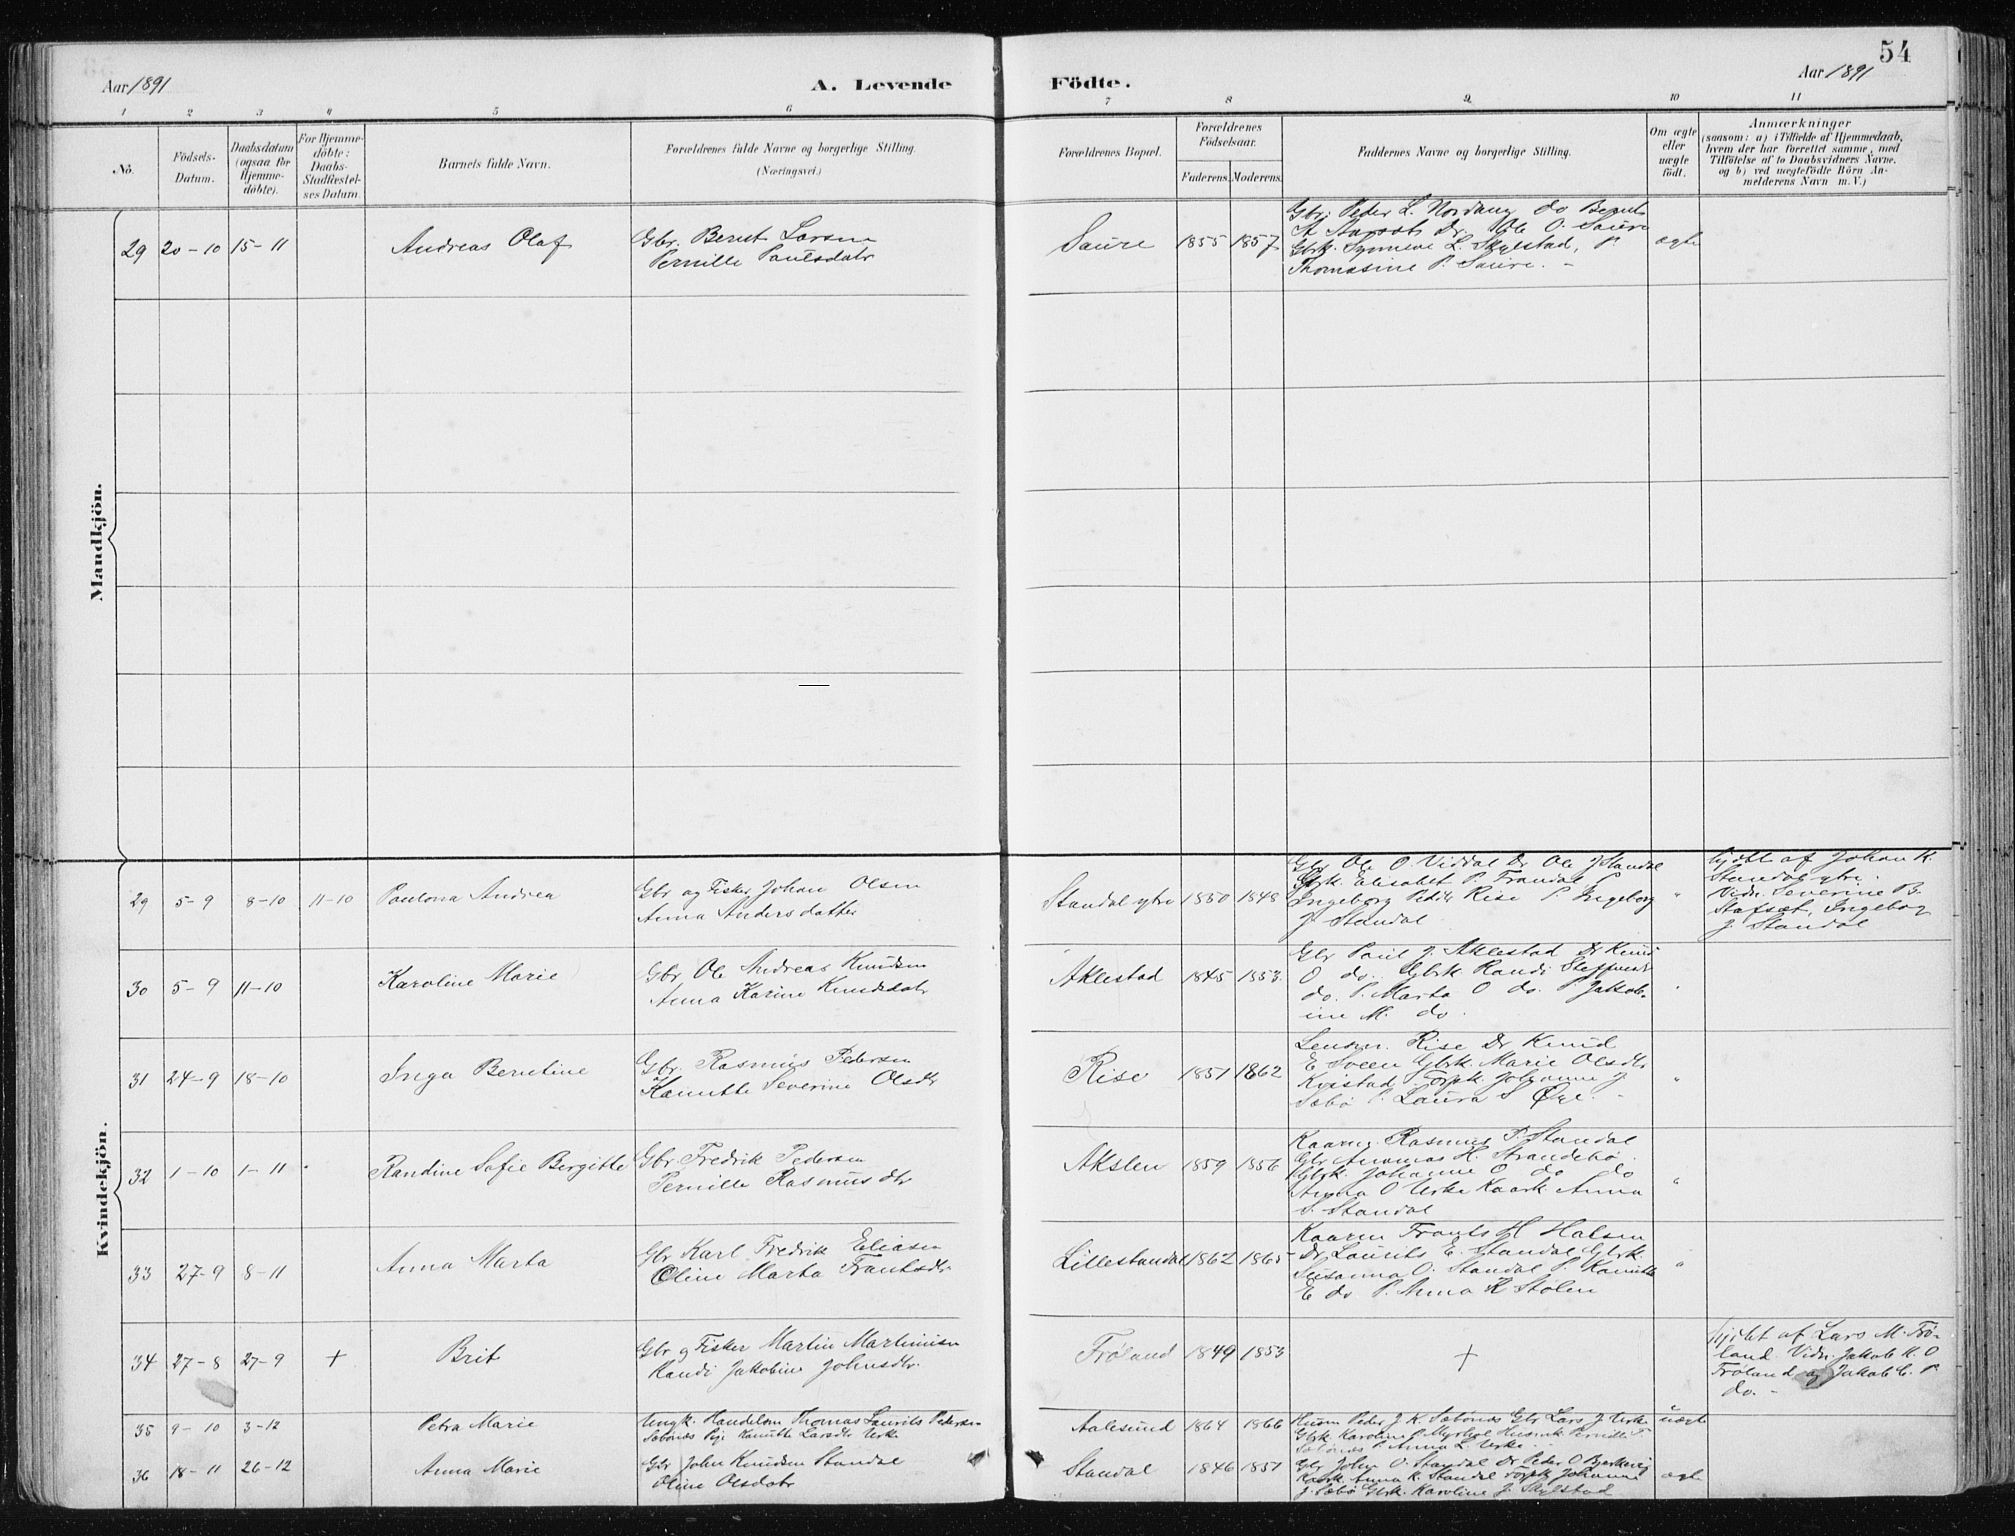 54
Aar 1891
A. Levende
Födte.
Aar 1891
1 2 3 4 5 6 7 8 9 10 11
No.
Födsels-
Datum.
Daabsdatum
(ogsaa for
Hjemme-
döbte).
For Hjemme-
döbte:
Daabs-
Stadfæstel-
ses Datum.
Barnets fulde Navn.
Forældrenes fulde Navne og borgerlige Stilling.
(Næringsvei.)
Forældrenes Bopæl.
Forældrenes
Födselsaar.
Faderens. Moderens.
Faddernes Navne og borgerlige Stilling.
Om ægte
eller
uægte
födt.
Anmærkninger
(saasom: a) i Tilfælde af Hjemmedaab,
hvem der har forrettet samme, med
Tilföielse af to Daabsvidners Navne.
og b) ved uægtefödte Börn An-
melderens Navn m. V.)
Mandkjön.
29 20-10 15-11
Andreas Olaf
Gbr. Bernt Larsen
Pernille Paulsdatr
Saure 1855 1857
Gbr. Peder L. Nordang do Bernt
A Aarseth Dr. Ole O. Saure
Gbrk. Synneve L. Skylstad, P.
Thomasine P. Saure. -
ægte
Kvindekjön.
29 5-9 8-10 11-10
Paulona Andrea
Gbr og Fisker Johan Olsen
Anna Andersdatter
Standal ytre 1850 1848
Gbr Ole O. Viddal Dr Ole J Standal
Gbrk. Elisabet P. Trandal P
Ingeborg Pedr Rise P. Ingeborg
J. Standal
"
hjdbt af Johan K.
Standal ytre.
Vidn. Severine B.
Stafset, Ingebog
J. Standal
30 5-9 11-10
Karoline Marie
Gbr Ole Andreas Knudsen
Anna Karine Knudsdatr
Aklestad 1845 1853.
Gbr Paul J. Aklestad Dr Knud
O do. Gbrk Randi Steffensdr
do. P. Marta O do. P Jakob-
ine M. do.
"
31 24-9 18-10
Inga Berntine
Gbr. Rasmus Pedersen
Kanutte Severine Olsdtr
Rise 1851 1862
Lensm. Rise Dr Knud
E Sveen Gbrk Marie Olsdtr
Kvistad Torpk. Johanne J.
Sæbø P. Laura S Øye. -
"
32 1-10 1-11
Randine Sofie Bergitte
Gbr Fredrik Pedersen
Pernille Rasmusdtr
Akslen 1859 1856
Kaarm. Rasmus P. Standal
Gbr H. Strandebø.
Gbrk Johanne O do do
Anna O Urke Kaark. Anna
S. Standal
"
33 27-9 8-11
Anna Marta
Gbr Karl Fredrik Eliasen
Oline Marta Frantsdtr
Lillestandal 1862 1865
Kaarm Frants H Halsen
Dr Laurits E. Standal Gbrk.
Susanna O. Standal P. Kanutte
E do P. Anna K Stølen
"
34 27-8 27-9 +
Brit
Gbr og Fisker Martin Martinusen
Randi Jakobine Johnsdtr.
Frøland 1849 1853
+
hjdbt af Lars M. Frø-
land. Vidn. Jakob K. O
Frøland og Jakob C. P.
do. -
35 9-10 3-12
Petra Marie
Ungk. Handelsm Thomas Laurits Pedersen
Sæbønæs Pige Kanutte Larsdtr Urke
Aalesund 1864 1866
Husm Peder J. K. Sæbønæs Gbr Lars J Urke
Gbrk. Karoline J. Myrhol Husmk Pernille T
Sæbønæs P Anna L. Urke.
uægte
36 18-11 26-12
Anna Marie
Gbr John Knudsen Standal
Oline Olsdatr
Standal 1846 1851
Gbr John O. Standal Dr Peder O Bjerkevig
Kaark Anna K. Standal Torpk Johanne
J. Sæbø Gbrk. Karoline J. Skylstad
ægte